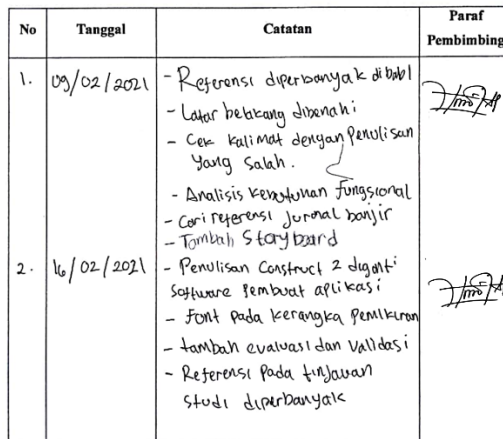 No Tanggal Catatan Paraf Pembimbing
1. 09/02/2021 - Referensi diperbanyak di bab 1
- Latar belakang dibenahi
- Cek kalimat dengan Penulisan
yang salah.
- Analisis kebutuhan fungsional
- Cari referensi Jurnal banjir
- Tambah Storyboard
2. 16/02/2021 - Penulisan Construct 2 diganti
software pembuat aplikasi
- Font pada kerangka Pemikiran
- tambah evaluasi dan validasi
- Referensi Pada tinjauan
studi diperbanyak